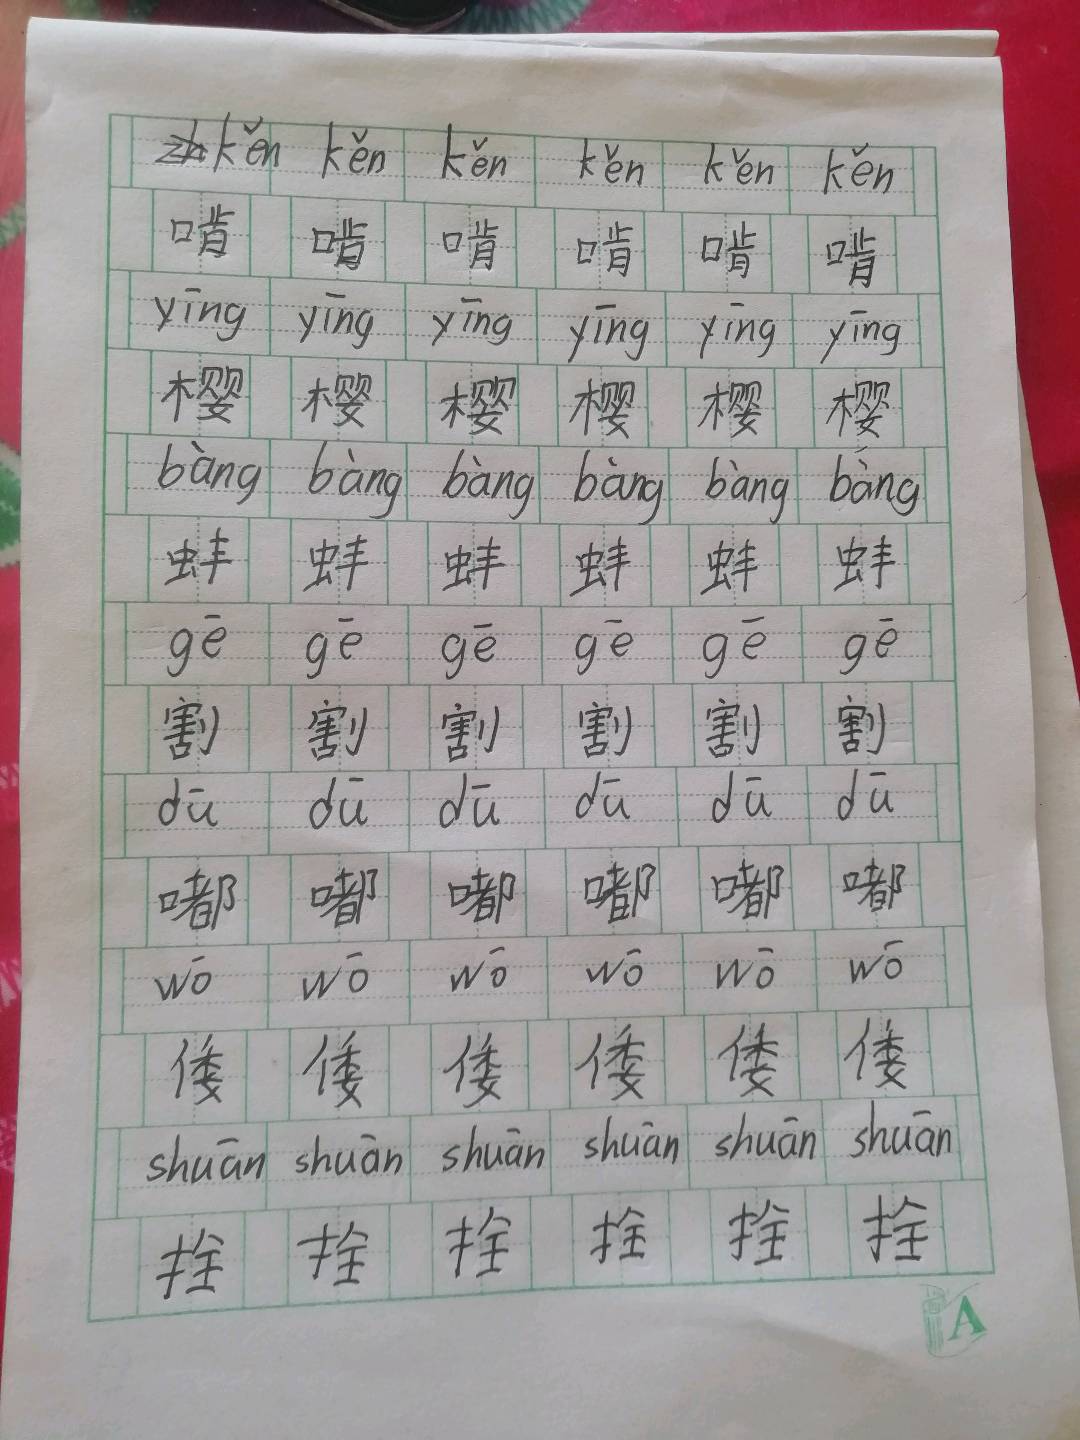 kěn kěn kěn kěn kěn kěn
啃 啃 啃 啃 啃 啃
yīng yīng yīng yīng yīng yīng
樱 樱 樱 樱 樱 樱
bàng bàng bàng bàng bàng bàng
蚌 蚌 蚌 蚌 蚌 蚌
gē gē gē gē gē gē
割 割 割 割 割 割
dū dū dū dū dū dū
嘟 嘟 嘟 嘟 嘟 嘟
wō wō wō wō wō wō
倭 倭 倭 倭 倭 倭
shuān shuān shuān shuān shuān shuān
拴 拴 拴 拴 拴 拴
A